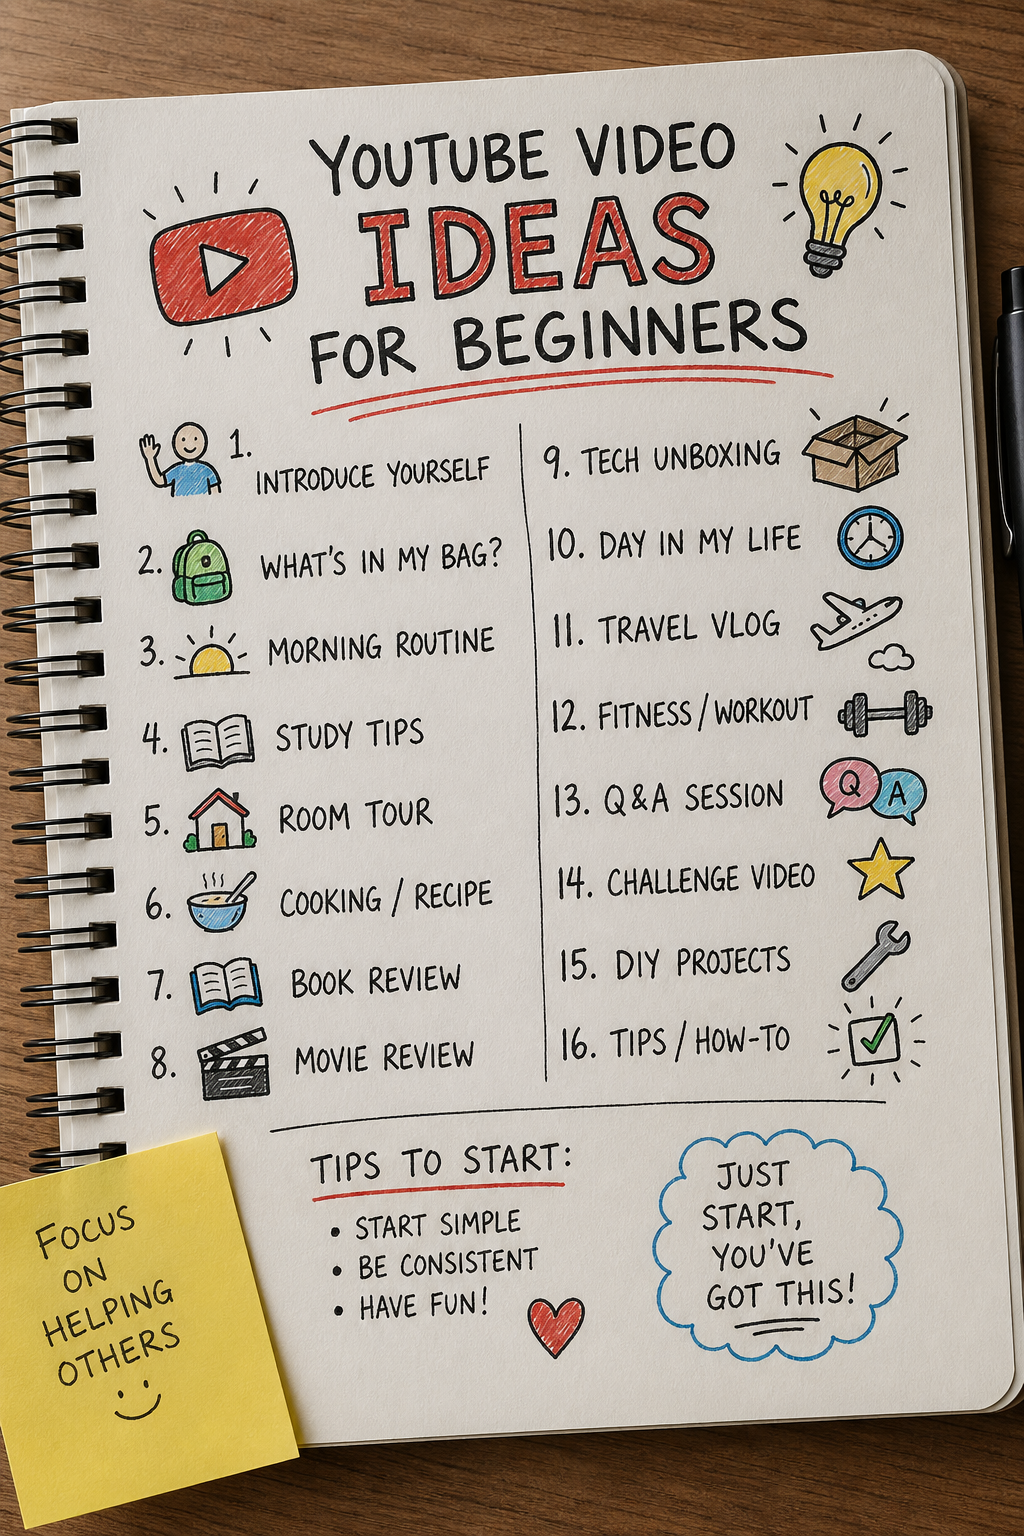 YOUTUBE VIDEO
IDEAS
FOR BEGINNERS
1. INTRODUCE YOURSELF
2. WHAT'S IN MY BAG?
3. MORNING ROUTINE
4. STUDY TIPS
5. ROOM TOUR
6. COOKING / RECIPE
7. BOOK REVIEW
8. MOVIE REVIEW
9. TECH UNBOXING
10. DAY IN MY LIFE
11. TRAVEL VLOG
12. FITNESS / WORKOUT
13. Q&A SESSION
Q A
14. CHALLENGE VIDEO
15. DIY PROJECTS
16. TIPS / HOW-TO
TIPS TO START:
• START SIMPLE
• BE CONSISTENT
• HAVE FUN!
JUST
START,
YOU'VE
GOT THIS!
FOCUS
ON
HELPING
OTHERS